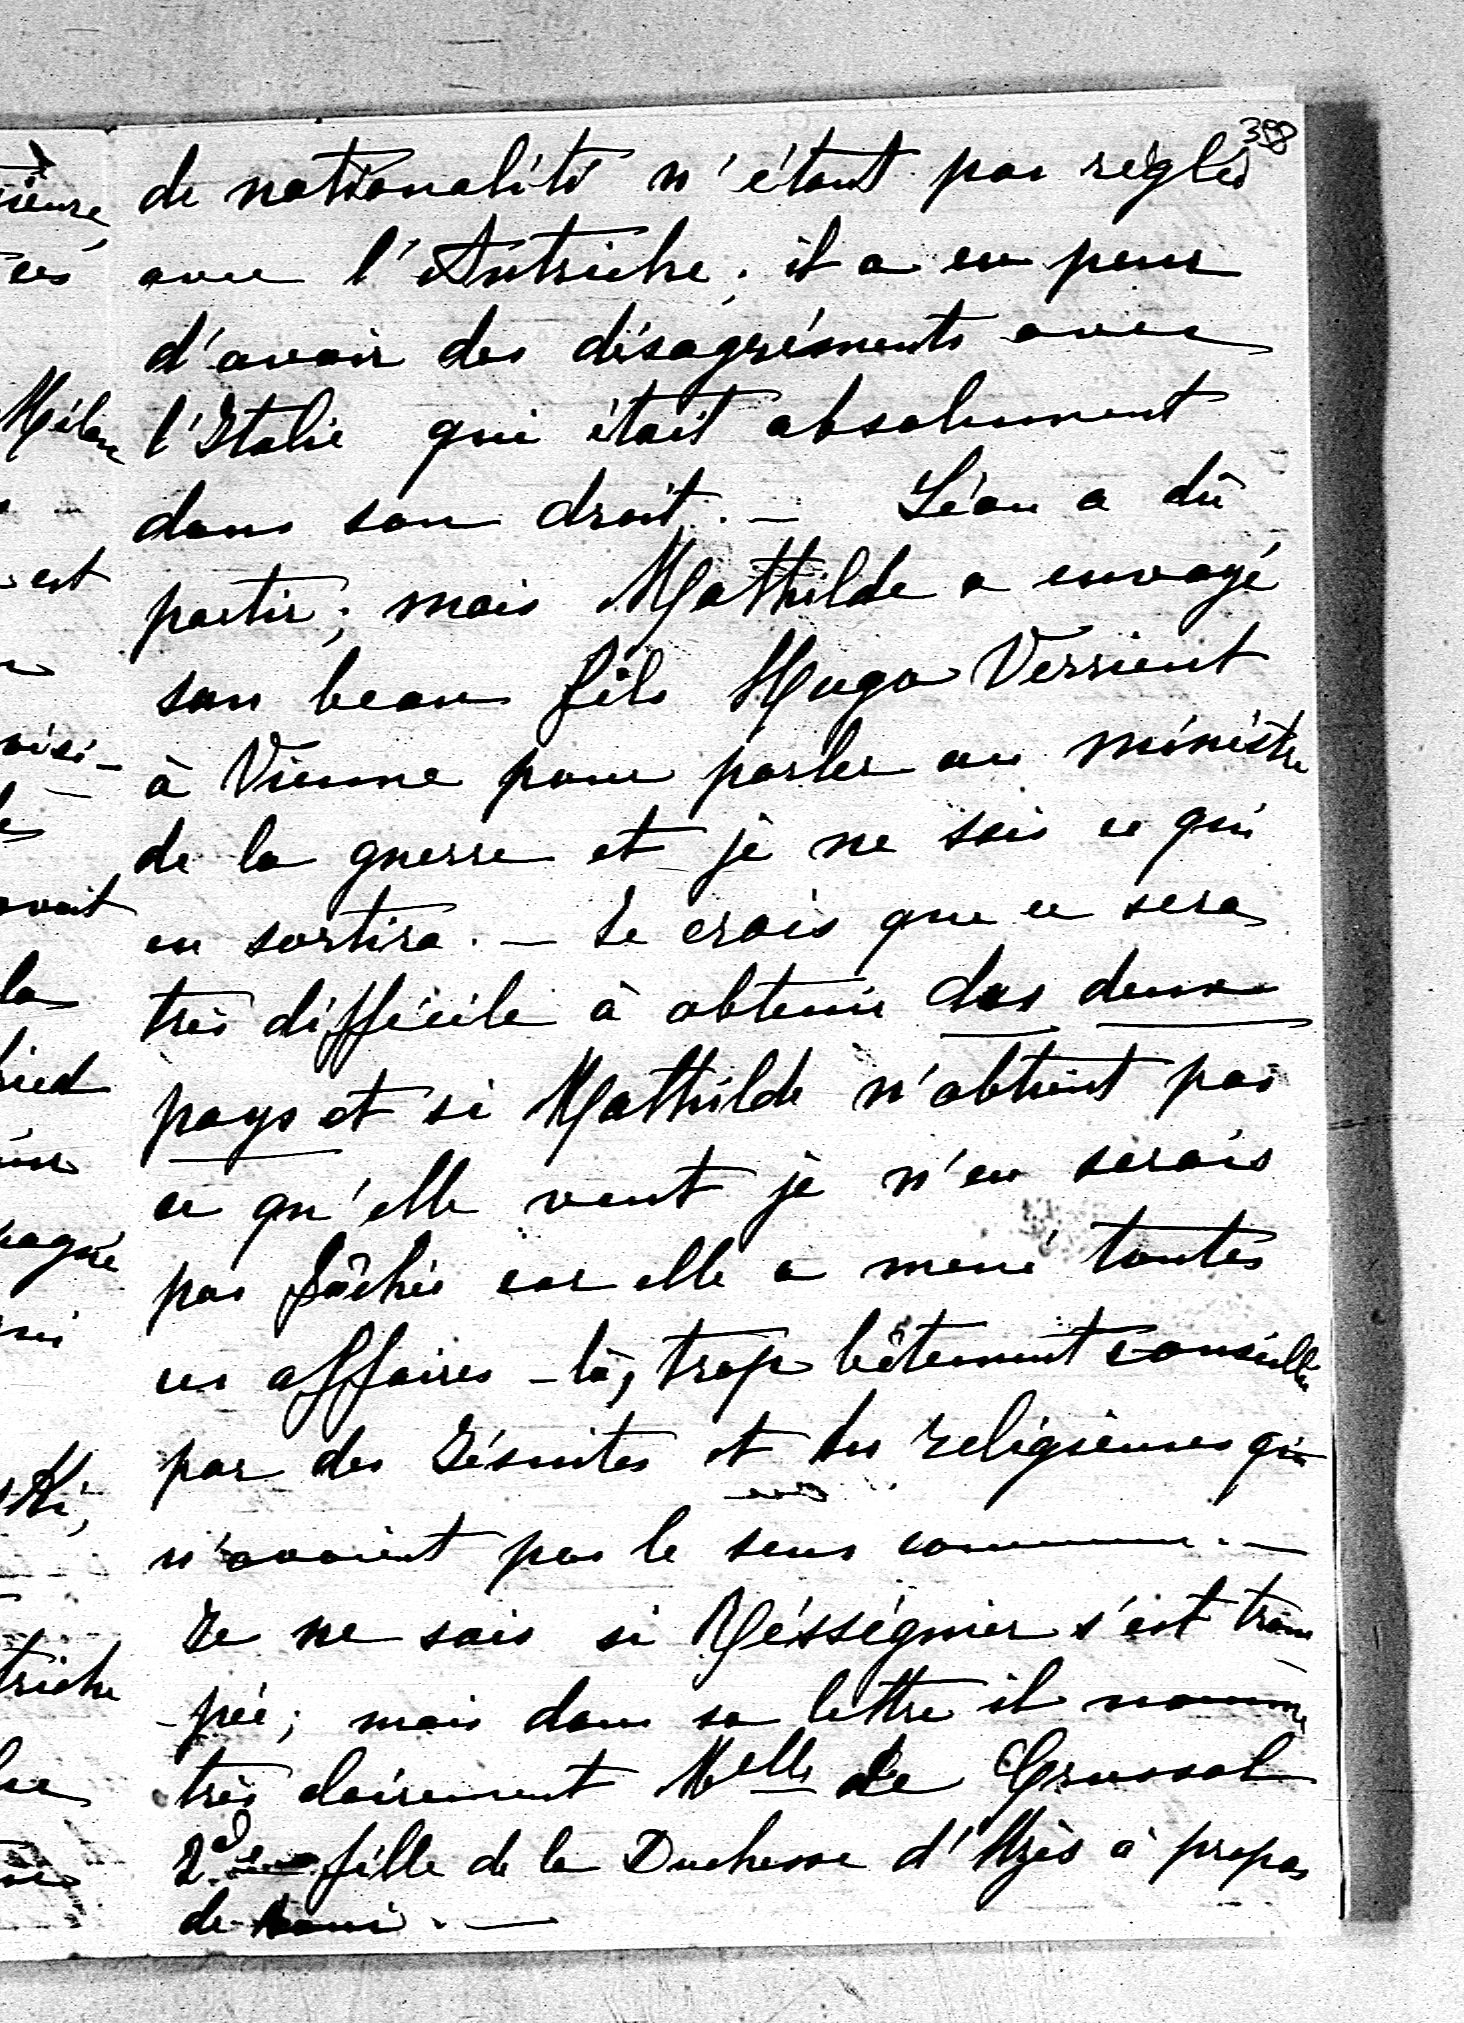 358
de nationalité n'étant pas réglée
avec l'Autriche; il a eu peur
d'avoir des désagréments avec
l'Italie qui était absolument
dans son droit. — Léon a dû
partir; mais Mathilde a envoyé
son beau fils Hugo Verrient
à Vienne pour parler au ministre
de la guerre et je ne sais ce qui
en sortira. — Je crois que ce sera
très difficile à obtenir des deux
pays et si Mathilde n'obtient pas
ce qu'elle veut je n'en serais
pas fâchée car elle a mené toutes
ces affaires-là, trop bêtement conseillée
par des Jésuites et des religieuses qui
n'avaient pas le sens commun. —
Je ne sais si Rességuier s'est trom
-pée; mais dans sa lettre il nomme
très clairement Melle de Crussol
2de fille de la Duchesse d'Uzès à propos
de